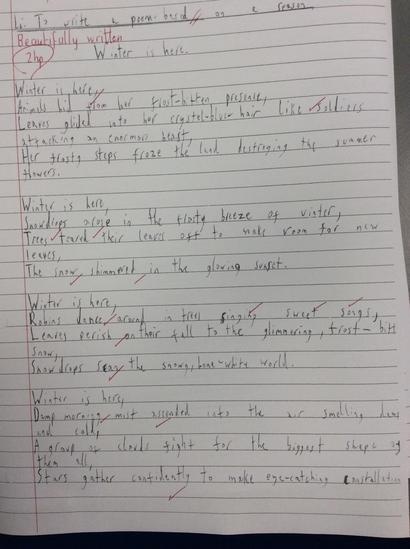 Li: To write a poem based on a season
Beautifully written
2hp
Winter is here.
Winter is here,
Animals hid from her frost-bitten presence,
Leaves glided into her crystel-blue hair like soldiers
attacking an enormous beast,
Her frosty steps froze the land destroying the summer
flowers.
Winter is here
Snowdrops arose in the frosty breeze of winter,
Trees teared their leaves off to make room for new
leaves,
The snow shimmered in the glowing sunset.
Winter is here,
Robins dance around in trees singing sweet songs,
Leaves perish on their fall to the glimmering, frost-bit
snow,
Snowdrops the snowy, bone-white world.
Winter is here,
Damp morning mist ascended into the air smelling
and cold,
A group of clouds fight for the biggest shape of
them all,
Stars gather confidently to make eye-catching